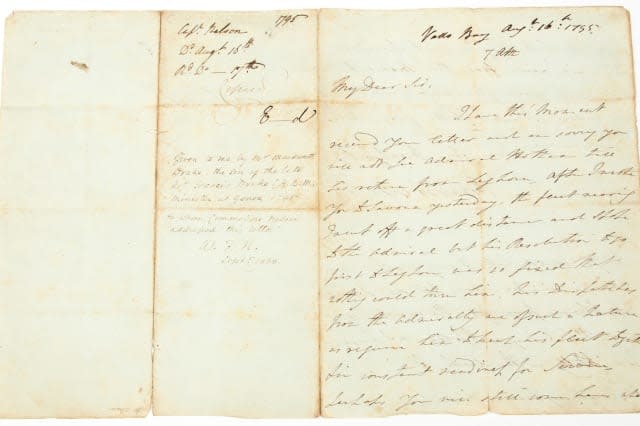 1795
Capt. Nelson
Do. Augt. 16th
Rd. Do — 17th
Given to me by Mr.
Drake, the son of the late
Rt. Francis Drake
Minister at Genoa
to whom Commodore Nelson
addressed this letter
Sept. 
Vado Bay Augt. 16th. 1795
7 AM
My Dear Sir,
I have this Moment
received your letter and am sorry you
will not see Admiral Hotham till
his return from Leghorn. After I wrote
you & Savona yesterday, the fleet
tack'd off a great distance and
the Admiral but his Resolution to go
first to Leghorn was so fixed that
nothing could turn him. His Dispatches
from the Admiralty are of such a Nature
as require him to keep his fleet together
in constant readiness for
perhaps you will still come here